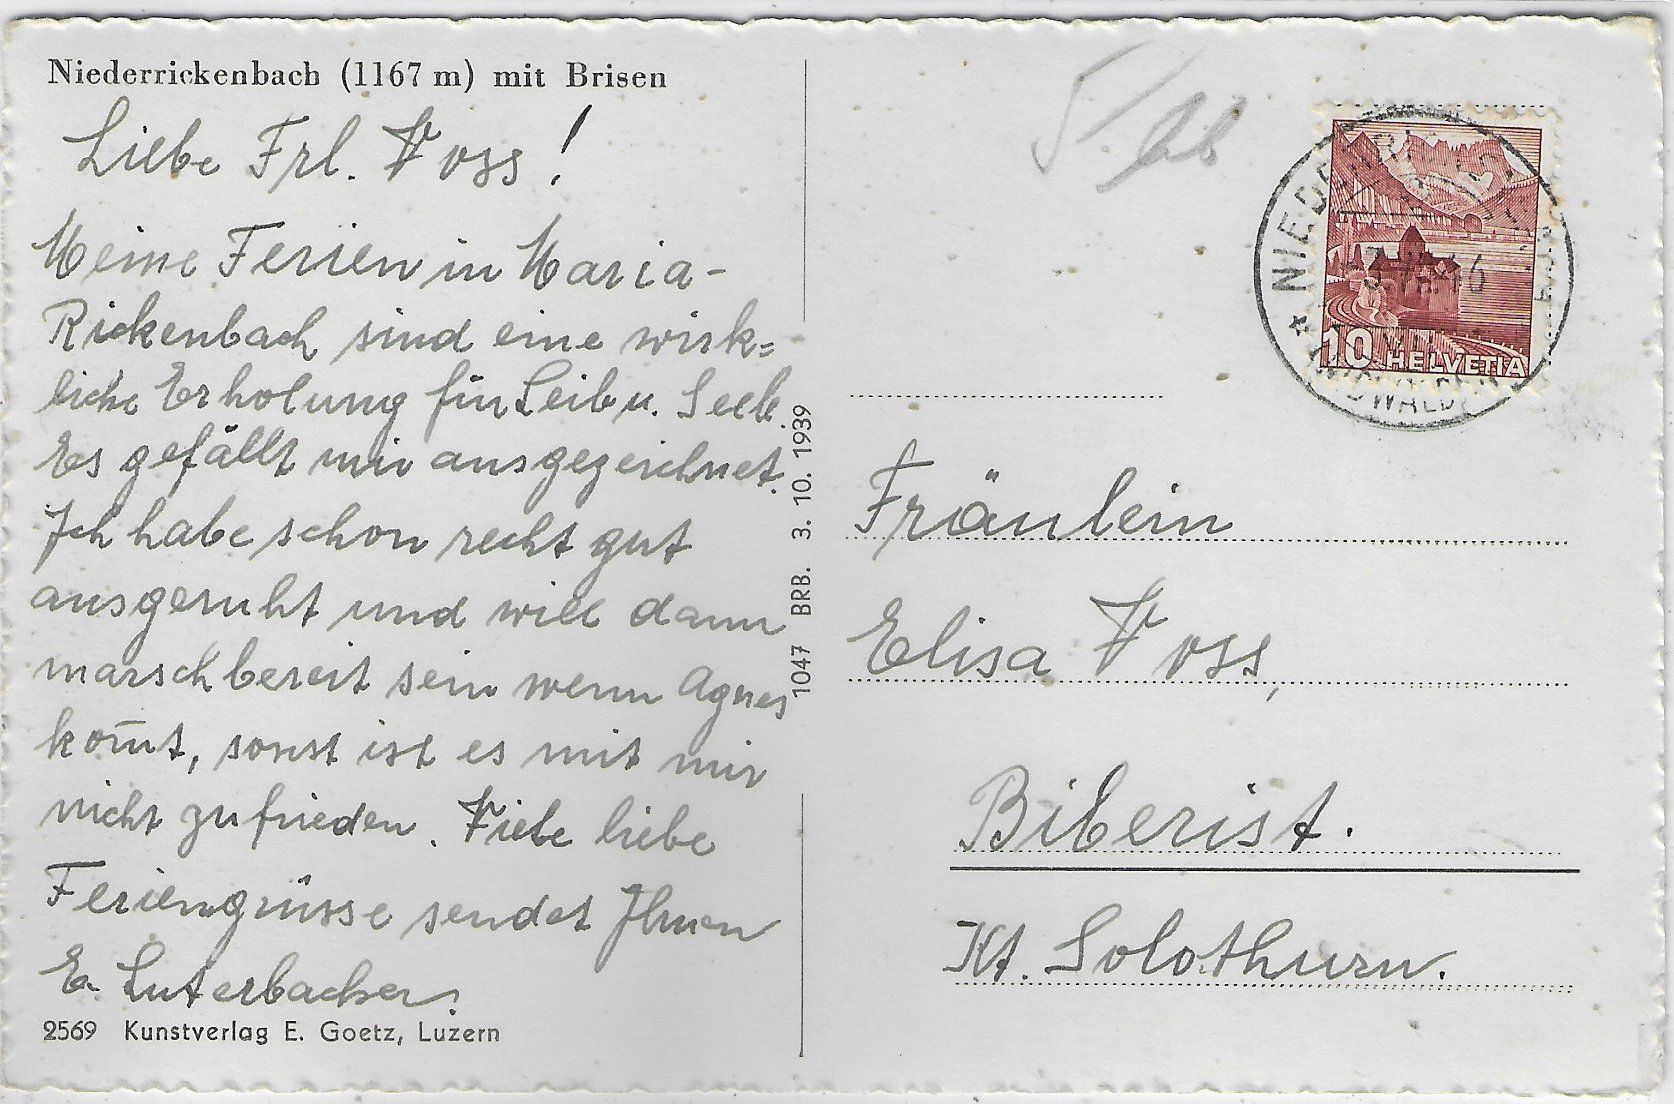 Niederrickenbach (1167 m) mit Brisen
Liebe Frl. Voss!
Meine Ferien in Maria-
Rickenbach sind eine wirk=
liche Erholung für Leib u. Seele.
Es gefällt mir ausgezeichnet.
Ich habe schon recht gut
ausgeruht und will dann
marschbereit sein wenn Agnes
kom̄t, sonst ist es mit mir
nicht zufrieden. Viele liebe
Feriengrüsse sendet Ihnen
E. Luterbacher.
2569 Kunstverlag E. Goetz, Luzern
1047 BRB. 3. 10. 1939
10 HELVETIA
Fräulein
Elisa Voss,
Biberist.
Kt. Solothurn.